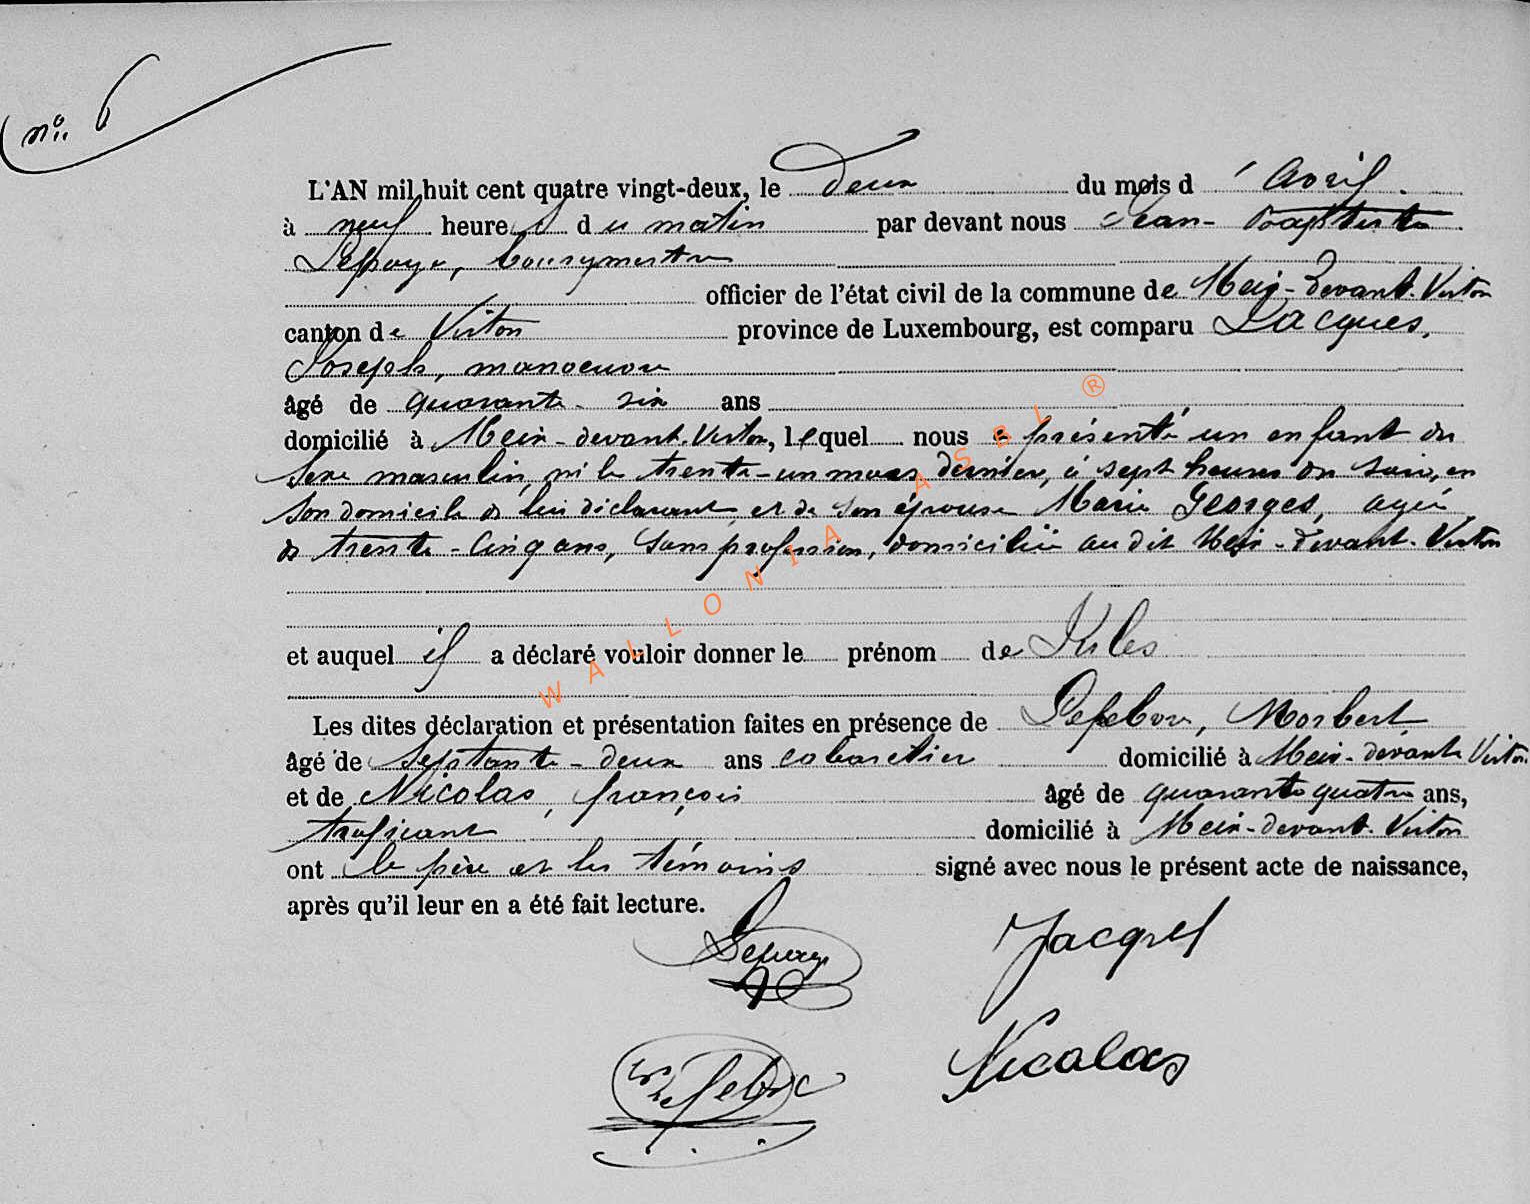 n°: 6
L'AN mil huit cent quatre vingt-deux, le deux du mois d'Avril.
à neuf heures du matin par devant nous Jean-Baptiste
Lepage, bourgmestre
officier de l'état civil de la commune de Meix-devant-Virton
canton de Virton province de Luxembourg, est comparu Jacques,
Joseph, manoeuvre
âgé de quarante-six ans
domicilié à Meix-devant-Virton, lequel nous a présenté un enfant du
sexe masculin, né le trente-un mars dernier, à sept heures du soir, en
son domicile de lui déclarant, et de son épouse Marie Georges, agée
de trente-cinq ans, sans profession, domiciliée au dit Meix-devant-Virton
et auquel il a déclaré vouloir donner le prénom de Jules
Les dites déclaration et présentation faites en présence de Lefebvre, Norbert
âgé de septante-deux ans cabaretier domicilié à Meix-devant-Virton
et de Nicolas, françois âgé de quarante quatre ans,
traficant domicilié à Meix-devant-Virton
ont le père et les témoins signé avec nous le présent acte de naissance,
après qu'il leur en a été fait lecture.
Lepage Jacques
Nicolas
WALLONIA ASBL ®